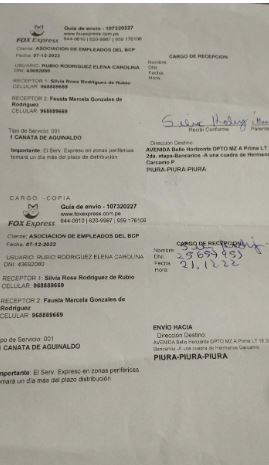 Guía de envío - 107320227
www.foxexpress.com.pe
FOX Express
644-0610 | 620-9997 | 959 176108
Cliente: ASOCIACION DE EMPLEADOS DEL BCP
Fecha: 07-12-2022
CARGO DE RECEPCION
USUARIO: RUBIO RODRIGUEZ ELENA CAROLINA
DNI: 40692080
Nombre
DNI:
Fecha:
Hora:
RECEPTOR 1: Silvia Rosa Rodriguez de Rubio
CELULAR: 968889669
RECEPTOR 2: Fausta Marcela Gonzales de
Rodriguez
CELULAR: 968889669
Recibí Conforme
Tipo de Servicio: 001
1 CANATA DE AGUINALDO
Dirección Destino:
AVENIDA Bello Horizonte DPTO MZ A Prima LT
2da. etapa-Bancarios -A una cuadra de Hermanos
Carcamo P
PIURA-PIURA-PIURA
Importante: El Serv. Expreso en zonas periféricas
tomará un día más del plazo de distribución
CARGO -COPIA
Guía de envío - 107320227
www.foxexpress.com.pe
FOX Express
644-0610 | 620-9997 | 959 176108
Cliente: ASOCIACION DE EMPLEADOS DEL BCP
Fecha: 07-12-2022
CARGO DE RECEPCION
USUARIO: RUBIO RODRIGUEZ ELENA CAROLINA
DNI: 40692080
Nombre:
DNI: 25659953
Fecha: 21,12,22
Hora:
RECEPTOR 1: Silvia Rosa Rodriguez de Rubio
CELULAR: 968889669
RECEPTOR 2: Fausta Marcela Gonzales de
Rodriguez
CELULAR: 968889669
po de Servicio: 001
CANATA DE AGUINALDO
ENVÍO HACIA
Dirección Destino:
AVENIDA Bello Horizonte DPTO MZ A Prima LT
Bancarios -A una cuadra de Hermanos Carcamo
PIURA-PIURA-PIURA
mportante: El Serv. Expreso en zonas periféricas
omará un día más del plazo distribución